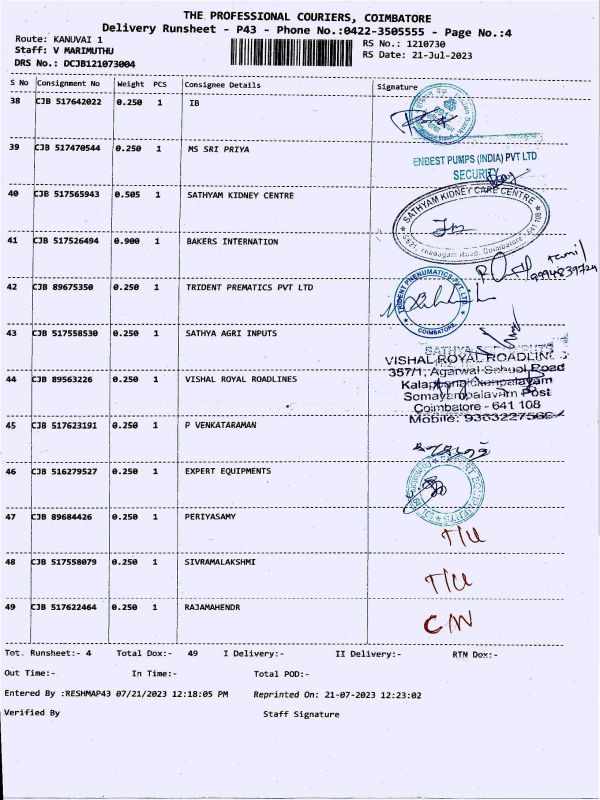 THE PROFESSIONAL COURIERS, COIMBATORE
Delivery Runsheet - P43 - Phone No.:0422-3505555 - Page No.:4
Route: KANUVAI 1
RS No.: 1210730
Staff: V MARIMUTHU
RS Date: 21-Jul-2023
DRS No.: DCJB121073004
S No Consignment No Weight PCS Consignee Details Signature
38 CJB 517642022 0.250 1 IB
39 CJB 517470544 0.250 1 MS SRI PRIYA
ENDEST PUMPS (INDIA) PVT LTD
SECURITY
40 CJB 517565943 0.505 1 SATHYAM KIDNEY CENTRE
SATHYAM KIDNEY CARE CENTRE
Road, Coimbatore - 641 108
41 CJB 517526494 0.900 1 BAKERS INTERNATION
tamil
42 CJB 89675350 0.250 1 TRIDENT PREMATICS PVT LTD
TRIDENT PNEUMATICS PVT LTD
COIMBATORE
43 CJB 517558530 0.250 1 SATHYA AGRI INPUTS
SATHYA
VISHAL ROYAL ROADLINES
357/1, Agarwal School Road
44 CJB 89563226 0.250 1 VISHAL ROYAL ROADLINES
Somayampalayam Post
Coimbatore - 641 108
Mobile:
45 CJB 517623191 0.250 1 P VENKATARAMAN
46 CJB 516279527 0.250 1 EXPERT EQUIPMENTS
47 CJB 89684426 0.250 1 PERIYASAMY
T/U
48 CJB 517558079 0.250 1 SIVRAMALAKSHMI
T/U
49 CJB 517622464 0.250 1 RAJAMAHENDR
C/N
Tot. Runsheet:- 4 Total Dox:- 49 I Delivery:- II Delivery:- RTN Dox:-
Out Time:- In Time:- Total POD:-
Entered By :RESHMAP43 07/21/2023 12:18:05 PM Reprinted On: 21-07-2023 12:23:02
Verified By Staff Signature